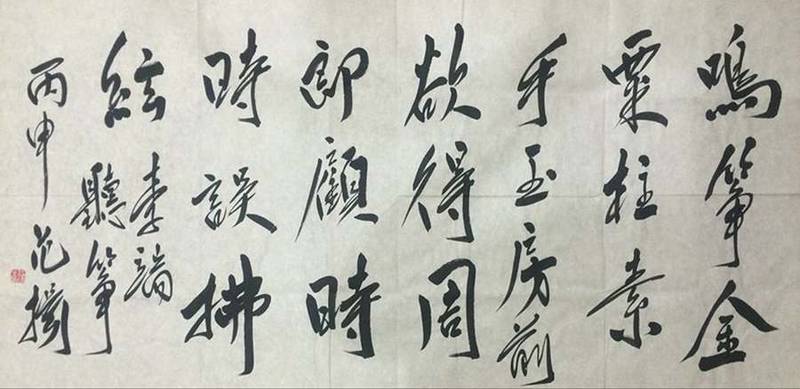 鳴箏金
粟柱素
手玉房前
欲得周
郎顧時
時誤拂
絃 李端
聽箏
丙申 范